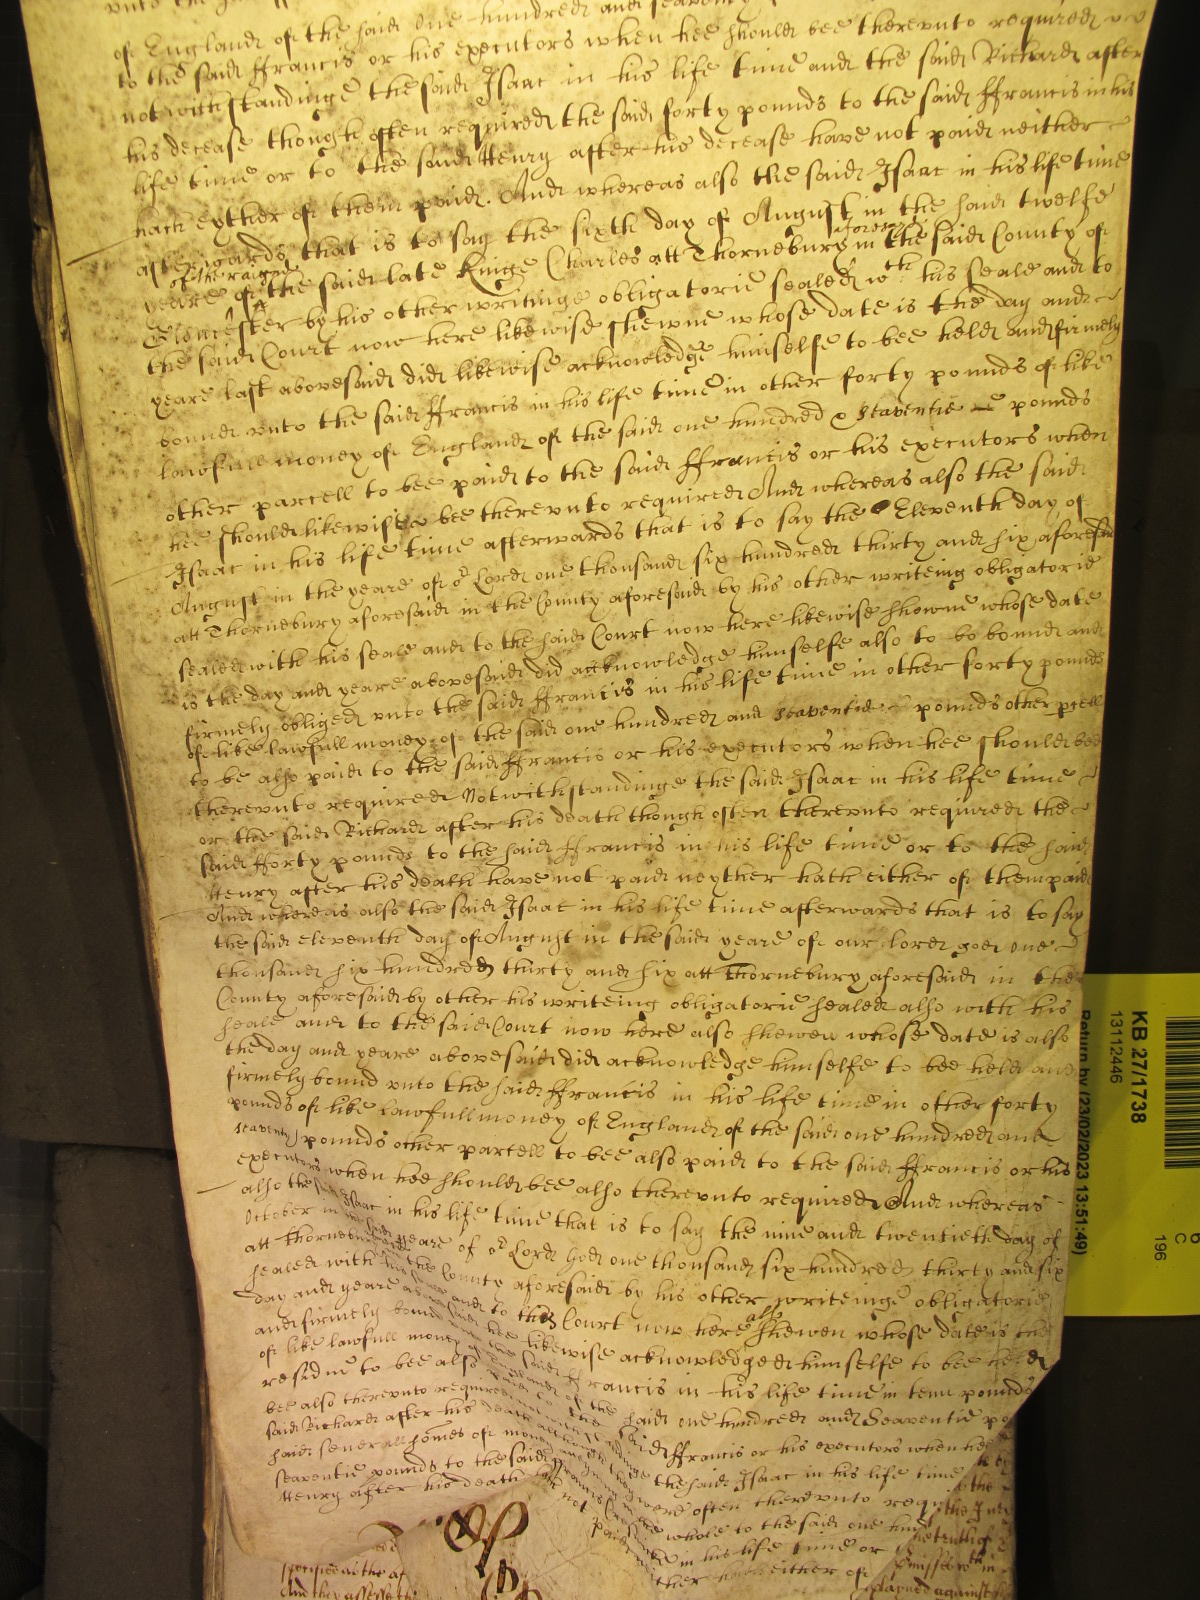 of England of the said One hundred and seaventy
to the said ffrancis or his executors when hee should bee therevnto required
notwithstandinge the said Isaac in his life time and the said Richard after
his decease though often required the said forty pounds to the said ffrancis in his
life time or to the said Henry after his decease have not paid neither
hath eyther of them paid. And whereas also the said Isaac in his life time
afterwards that is to say the sixth day of August in the said twelfe
yeare of the raigne of the said late Kinge Charles att Thorneburye aforesaid in the said County of
Gloucester by his other writinge obligatorie sealed wth his seale and to
the said Court now here likewise shewne whose date is the day and
yeare last abovesaid did likewise acknowledge himselfe to bee held and firmely
bound vnto the said ffrancis in his life time in other forty pounds of like
lawfull money of England of the said one hundred & seaventie pounds
other parcell to bee paid to the said ffrancis or his executors when
hee should likewise bee therevnto required And whereas also the said
Isaac in his life time afterwards that is to say the Eleventh day of
August in the yeare of or Lord one thousand six hundred thirty and six aforesaid
att Thornebury aforesaid in the County aforesaid by his other writeing obligatorie
sealed with his seale and to the said Court now here likewise showne whose date
is the day and yeare abovesaid did acknowledge himselfe also to bo bound and
firmely obliged vnto the said ffrancis in his life time in other forty pounds
of like lawfull money of the said one hundred and seaventie pounds other pcell
to be also paid to the said ffrancis or his executors when hee should bee
therevnto required Notwithstandinge the said Isaac in his life time
or the said Richard after his death though often therevnto required the
said fforty pounds to the said ffrancis in his life time or to the said
Henry after his death have not paid neyther hath either of them paid
And whereas also the said Isaac in his life time afterwards that is to say
the said eleventh day of August in the said yeare of our lord god one
thousand six hundred thirty and six att Thornebury aforesaid in the
County aforesaid by other his writeing obligatorie sealed also with his
seale and to the said Court now here also shewen whose date is also
the day and yeare abovesaid did acknowledge himselfe to bee held and
firmely bound vnto the said ffrancis in his life time in other forty
pounds of like lawfull money of England of the said one hundred and
seaventy pounds other parcell to bee also paid to the said ffrancis or his
executors when hee should bee also therevnto required And whereas
also the said Isaac in his life time that is to say the nine and twentieth day of
October in the said yeare of or Lord God one thousand six hundred thirty and six
att Thornebury in the County aforesaid by his other writeinge obligatorie
sealed with his seale and to the Court now here also shewen whose date is the
day and yeare abovesaid hee likewise acknowledged himselfe to bee held
and firmely bound vnto the said ffrancis in his life time in tenn pounds
of like lawfull money of England of the said one hundred and Seaventie
residue to bee also paid to the said ffrancis or his executors when hee
bee also therevnto required notwithstandinge the said Isaac in his life time
said Richard after his death although they were often therevnto
said severall somes of money in the whole to the said one
seaventie pounds to the said ffrancis in his life time or
Henry after his death have not paid either of
the truth of
KB 27/1738
13112446
Return by (23/02/2023 13:51:49)
C
196